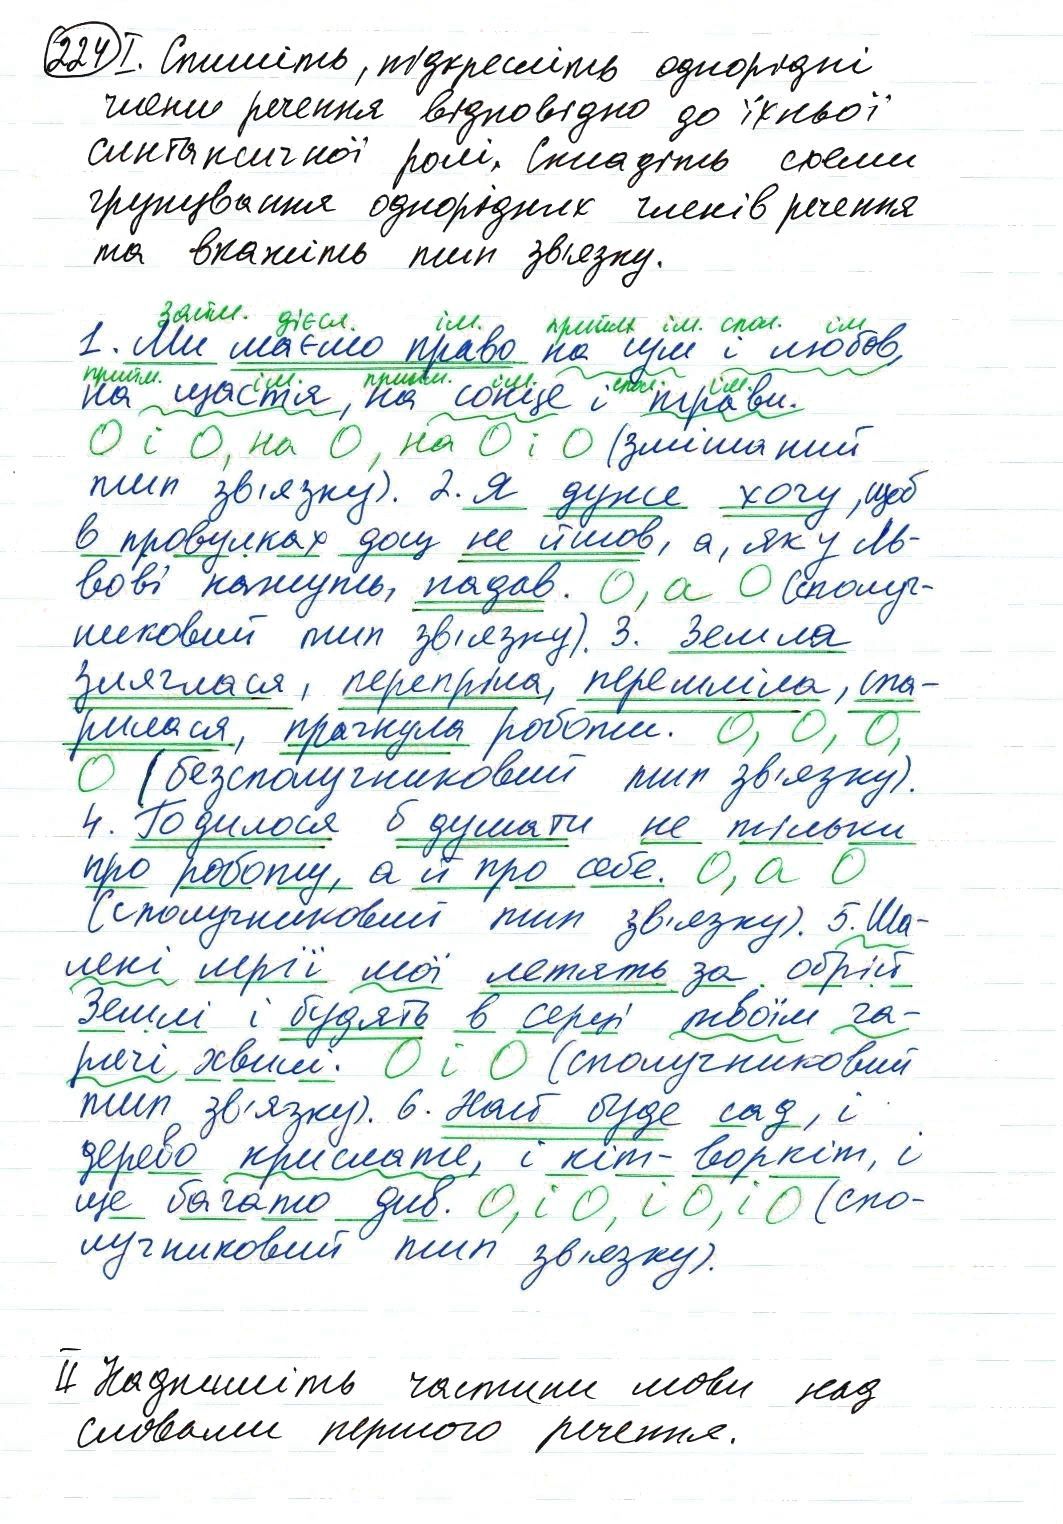 224 I. Спишіть, підкресліть однорідні
члени речення відповідно до їхньої
синтаксичної ролі. Складіть схеми
групування однорідних членів речення
та вкажіть тип зв'язку.
займ. дієсл. ім. прийм. ім. спол. ім.
1. Ми маємо право на сум і любов,
прийм. ім. прийм. ім. спол. ім.
на щастя, на сонце і трави.
О і О, на О, на О і О (змішаний
тип зв'язку). 2. Я дуже хочу, щоб
в провулках дощ не йшов, а, як у Ль-
вові кажуть, падав. О, а О (сполуч-
никовий тип зв'язку). 3. Земля
злягласа, перепріла, перемліла, спа-
рилася, прагнула роботи. О, О, О,
О (безсполучниковий тип зв'язку).
4. Годилося б думати не тільки
про роботу, а й про себе. О, а О
(сполучниковий тип зв'язку). 5. Ша-
лені мрії мої летять за обрій
Землі і будять в серці твоїм га-
рячі хвилі. О і О (сполучниковий
тип зв'язку). 6. Наш буде сад, і
дерево крислате, і кіт-воркіт, і
ще багато див. О, і О, і О, і О (спо-
лучниковий тип зв'язку).
II Надпишіть частини мови над
словами першого речення.